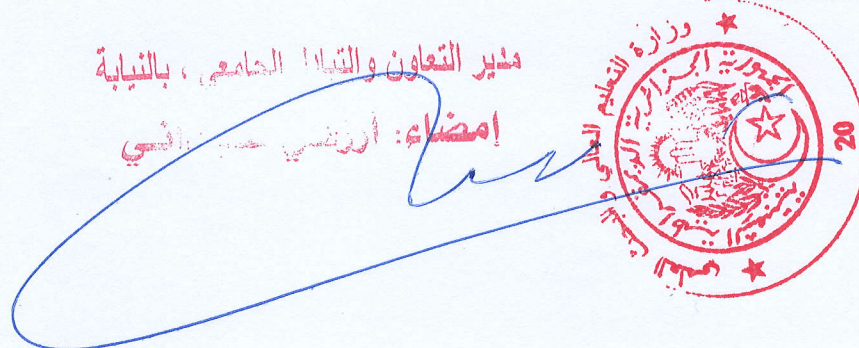 مدير التعاون والتبادل الجامعي ، بالنيابة
إمضاء: أرزقي
وزارة التعليم العالي و البحث العلمي
الجمهورية الجزائرية الديمقراطية الشعبية
20